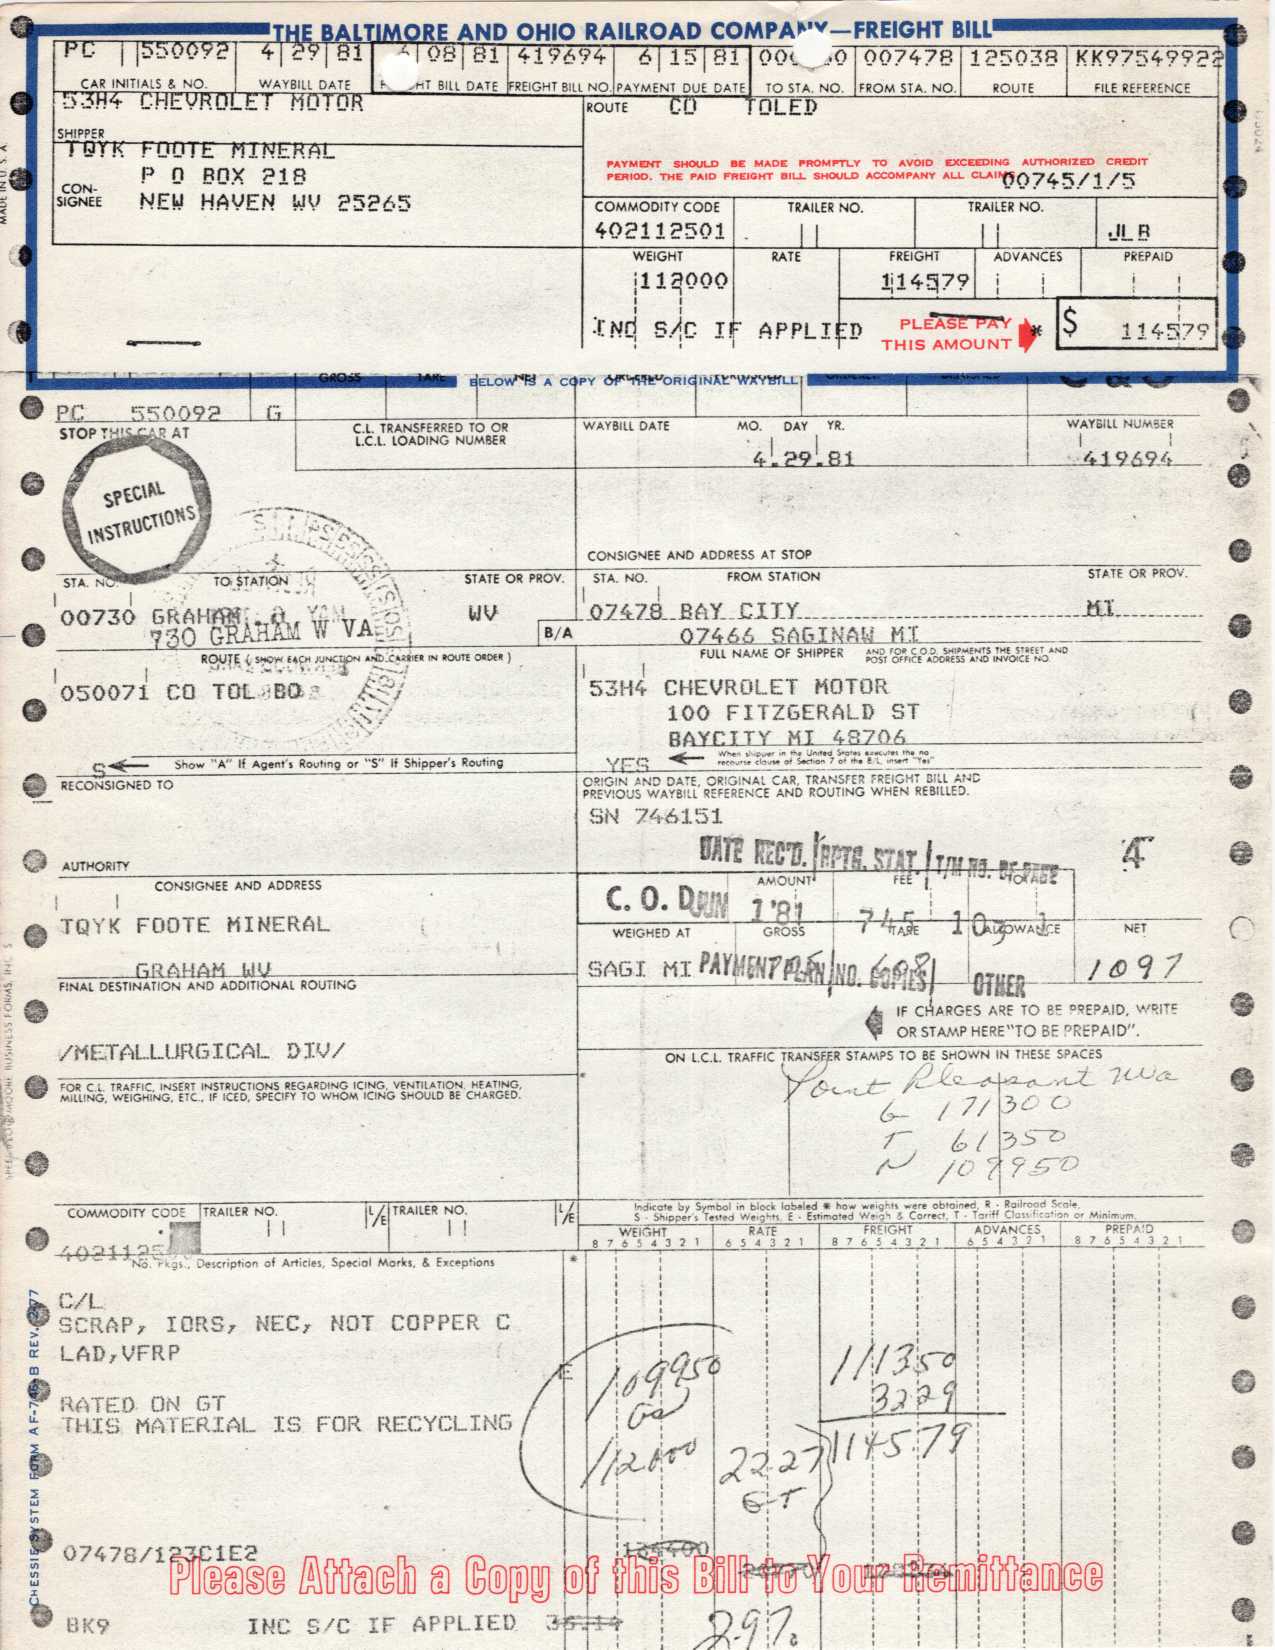 THE BALTIMORE AND OHIO RAILROAD COMPANY—FREIGHT BILL
PC 550092 4 29 81 6 08 81 419694 6 15 81 007478 125038 KK97549922
CAR INITIALS & NO. WAYBILL DATE FREIGHT BILL DATE FREIGHT BILL NO. PAYMENT DUE DATE TO STA. NO. FROM STA. NO. ROUTE FILE REFERENCE
53H4 CHEVROLET MOTOR
ROUTE CO TOLED
SHIPPER
TQYK FOOTE MINERAL
P O BOX 218
CON-
SIGNEE NEW HAVEN WV 25265
PAYMENT SHOULD BE MADE PROMPTLY TO AVOID EXCEEDING AUTHORIZED CREDIT
PERIOD. THE PAID FREIGHT BILL SHOULD ACCOMPANY ALL CLAIMS
00745/1/5
COMMODITY CODE TRAILER NO. TRAILER NO.
402112501 JLB
WEIGHT RATE FREIGHT ADVANCES PREPAID
112000 114579
INC S/C IF APPLIED PLEASE PAY
THIS AMOUNT * $ 114579
MADE IN U.S.A.
GROSS TARE
BELOW IS A COPY OF THE ORIGINAL WAYBILL
PC 550092 G
STOP THIS CAR AT
C.L. TRANSFERRED TO OR
L.C.L. LOADING NUMBER
WAYBILL DATE MO. DAY YR. WAYBILL NUMBER
4 29 81 419694
SPECIAL
INSTRUCTIONS
CONSIGNEE AND ADDRESS AT STOP
STA. NO. TO STATION STATE OR PROV. STA. NO. FROM STATION STATE OR PROV.
00730 GRAHAM WV 07478 BAY CITY MI
730 GRAHAM W VA B/A 07466 SAGINAW MI
ROUTE (SHOW EACH JUNCTION AND CARRIER IN ROUTE ORDER)
FULL NAME OF SHIPPER AND FOR C.O.D. SHIPMENTS THE STREET AND
POST OFFICE ADDRESS AND INVOICE NO.
050071 CO TOL BO 53H4 CHEVROLET MOTOR
100 FITZGERALD ST
BAYCITY MI 48706
S Show "A" If Agent's Routing or "S" If Shipper's Routing
YES When shipper in the United States executes the no
recourse clause of Section 7 of the B/L, insert "Yes"
RECONSIGNED TO
ORIGIN AND DATE, ORIGINAL CAR, TRANSFER FREIGHT BILL AND
PREVIOUS WAYBILL REFERENCE AND ROUTING WHEN REBILLED.
SN 746151
DATE REC'D. RPTG. STAT. T/M NO. OF PAGE
4
AUTHORITY
CONSIGNEE AND ADDRESS
AMOUNT FEE
C. O. D. JUN 1 '81 745
TQYK FOOTE MINERAL
WEIGHED AT GROSS TARE ALLOWANCE NET
GRAHAM WV
SAGI MI PAYMENT PLAN NO. COPIES OTHER 1097
FINAL DESTINATION AND ADDITIONAL ROUTING
IF CHARGES ARE TO BE PREPAID, WRITE
OR STAMP HERE "TO BE PREPAID".
/METALLURGICAL DIV/
ON L.C.L. TRAFFIC TRANSFER STAMPS TO BE SHOWN IN THESE SPACES
FOR C.L. TRAFFIC, INSERT INSTRUCTIONS REGARDING ICING, VENTILATION, HEATING,
MILLING, WEIGHING, ETC., IF ICED, SPECIFY TO WHOM ICING SHOULD BE CHARGED.
Point Pleasant Wva
G 171300
T 61350
N 109950
COMMODITY CODE TRAILER NO. L/E TRAILER NO. L/E
Indicate by Symbol in block labeled * how weights were obtained, R - Railroad Scale,
S - Shipper's Tested Weights, E - Estimated Weigh & Correct, T - Tariff Classification or Minimum.
WEIGHT RATE FREIGHT ADVANCES PREPAID
8 7 6 5 4 3 2 1 6 5 4 3 2 1 8 7 6 5 4 3 2 1 6 5 4 3 2 1 8 7 6 5 4 3 2 1
No. Pkgs., Description of Articles, Special Marks, & Exceptions *
C/L
SCRAP, IORS, NEC, NOT COPPER C
LAD,VFRP
E 109950 111350
3229
RATED ON GT
THIS MATERIAL IS FOR RECYCLING
112000 22.27 114579
GT
07478/123C1E2
Please Attach a Copy of this Bill to Your Remittance
BK9 INC S/C IF APPLIED 36.14
2.9%
CHESSIE SYSTEM FORM AF-746-B REV.